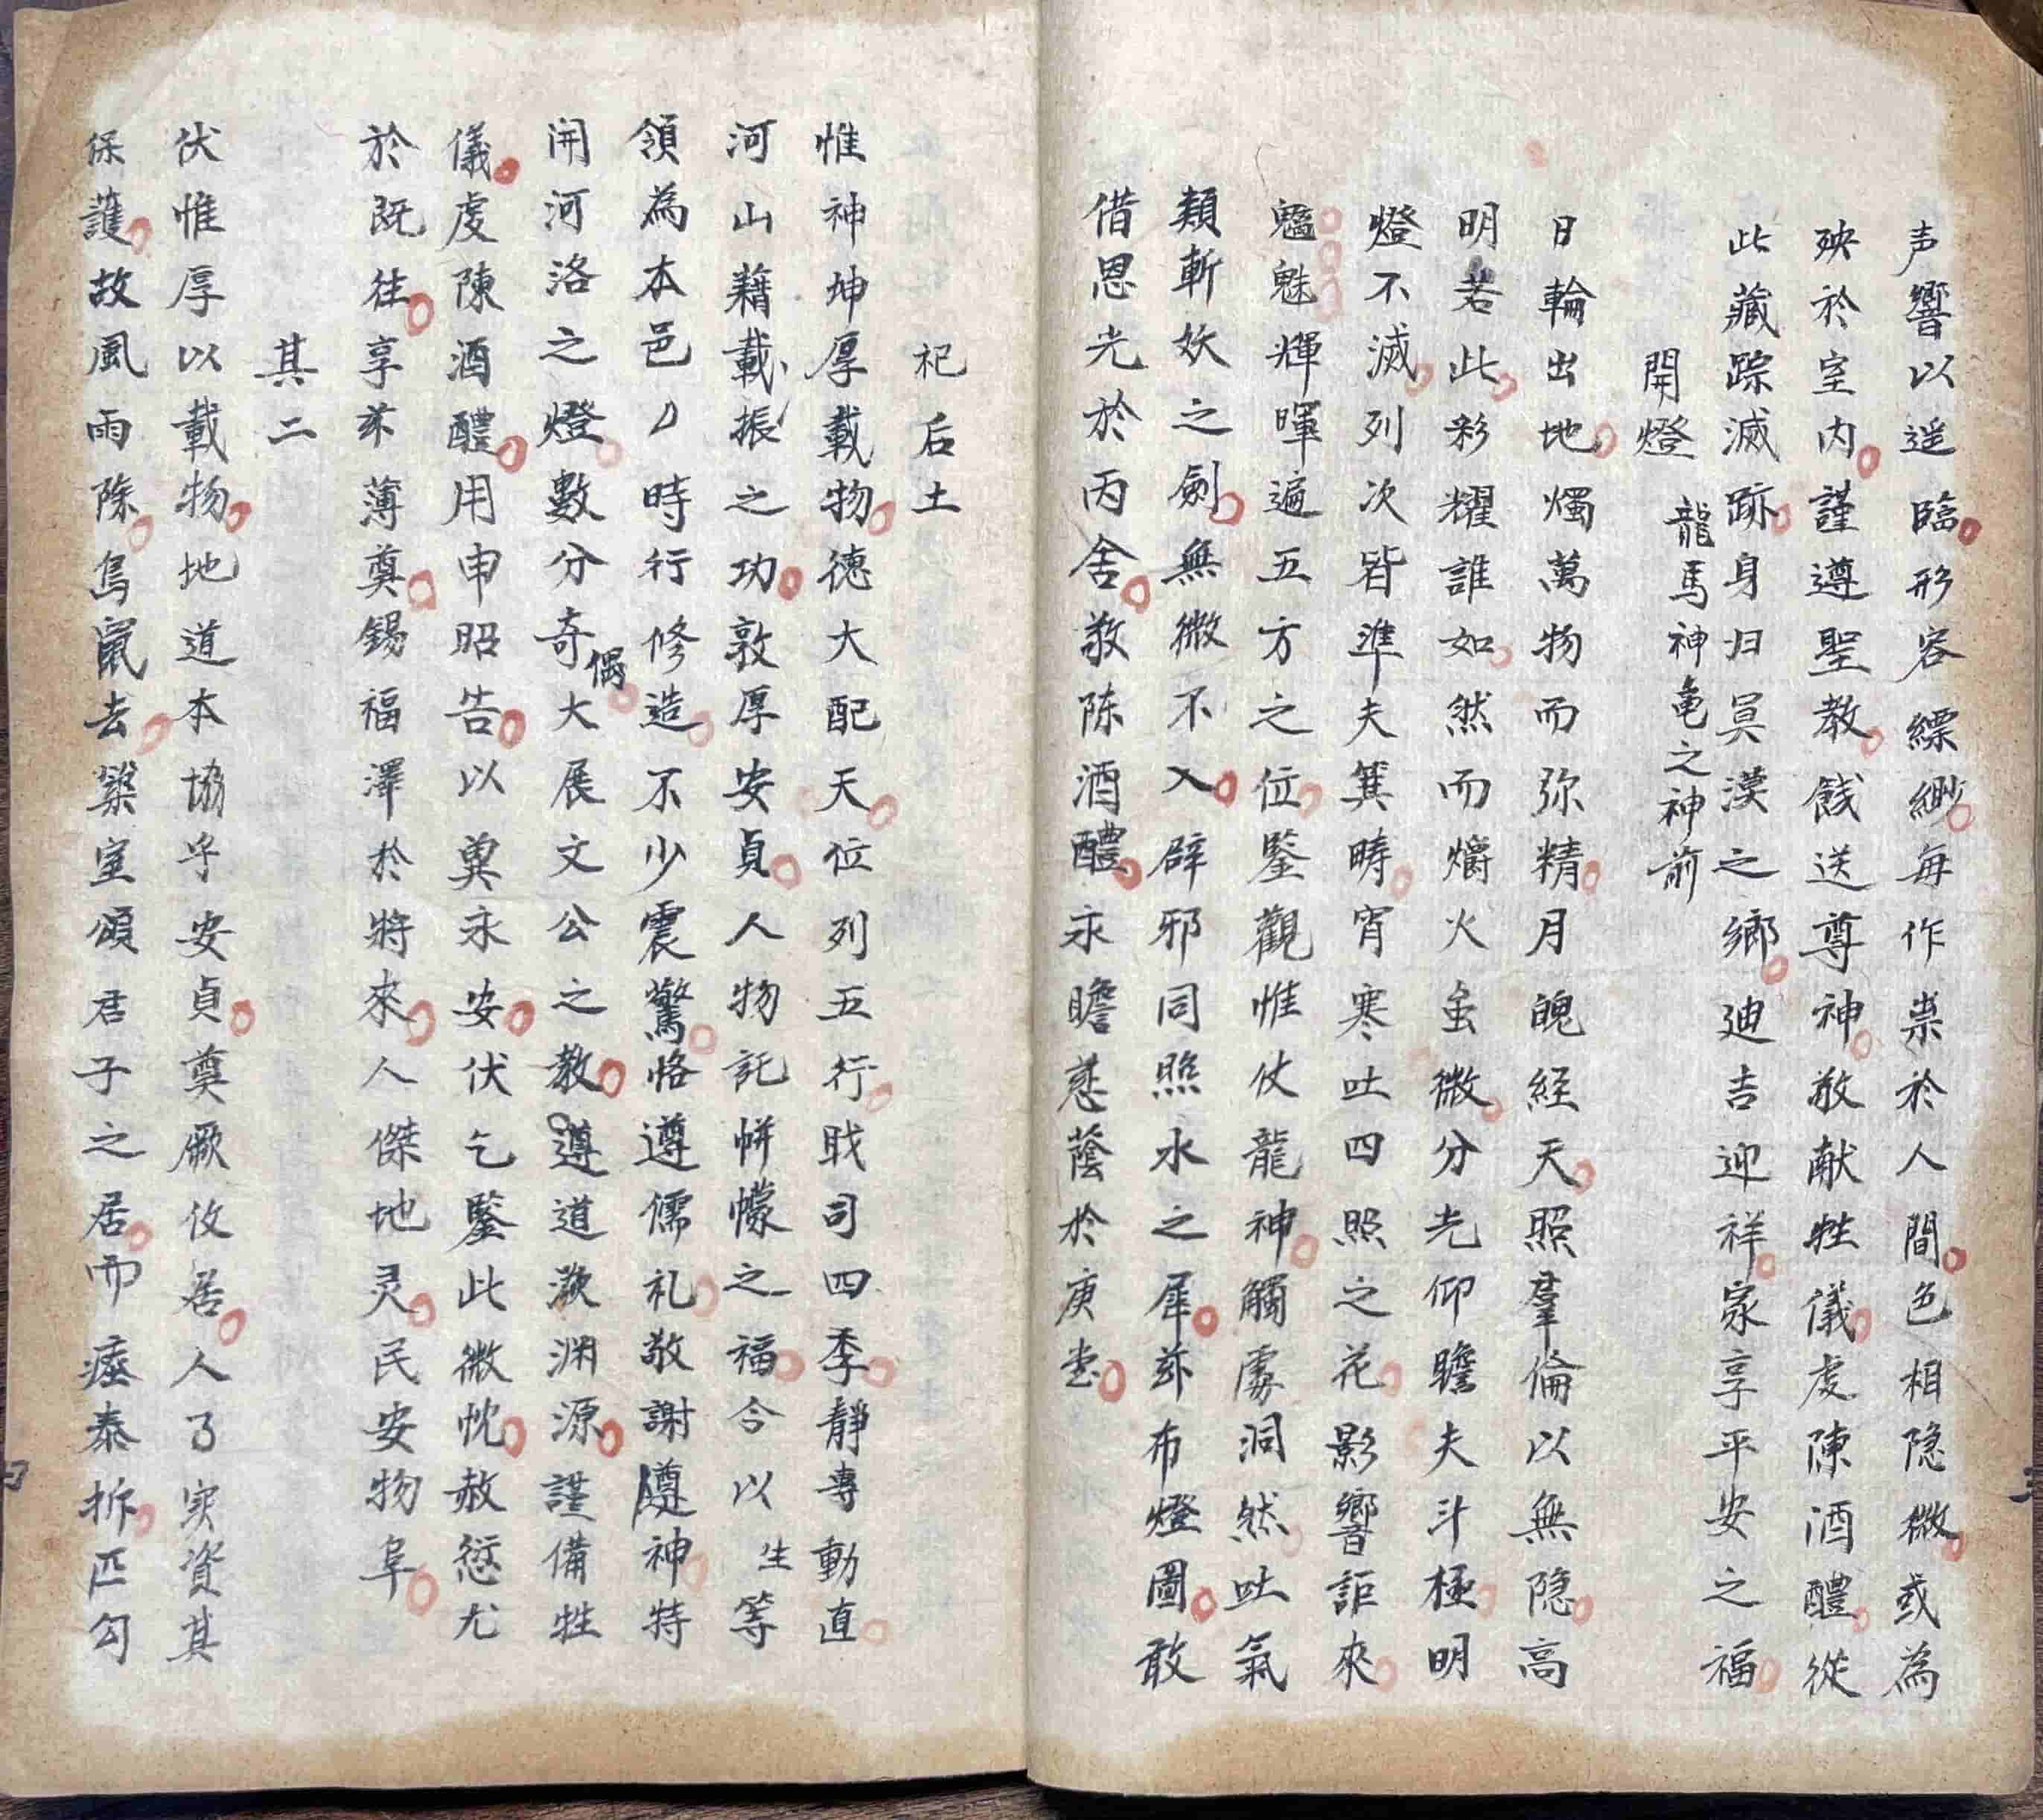 声響以遥臨形容縹緲每作祟於人間色相隐微或為
殃於室内謹遵聖教餞送尊神敬献牲儀虔陳酒醴從
此藏踪滅跡身归冥漠之鄉迪吉迎祥家享平安之福
開燈 龍馬神龟之神前
日輪出地燭萬物而弥精月魄経天照羣倫以無隐高
明若此彩耀誰如然而爝火虽微分光仰瞻夫斗極明
燈不滅列次皆準夫箕疇宵寒吐四照之花影響詎來
魑魅輝暉遍五方之位鑒觀惟仗龍神觸處洞然吐氣
類斬妖之劍無微不入辟邪同照水之犀茲布燈圖敢
借恩光於丙舍敬陈酒醴永瞻慈蔭於庚堂
祀后土
惟神坤厚載物德大配天位列五行戝司四季靜專動直
河山藉載振之功敦厚安貞人物託帡幪之福今以生等
領為本邑〃時行修造不少震驚恪遵儒礼敬謝遵神特
開河洛之燈數分奇偶大展文公之教遵道溯渊源謹備牲
儀虔陳酒醴用申昭告以奠永安伏乞鑒此微忱赦愆尤
於既往享茶薄奠錫福澤於將來人傑地灵民安物阜
其二
伏惟厚以載物地道本協乎安貞奠厥攸居人了实資其
保護故風雨除鳥鼠去築室頌君子之居而痊泰拆匹勾